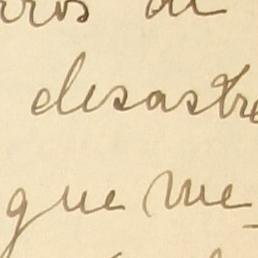 rros de
desastre
que me-